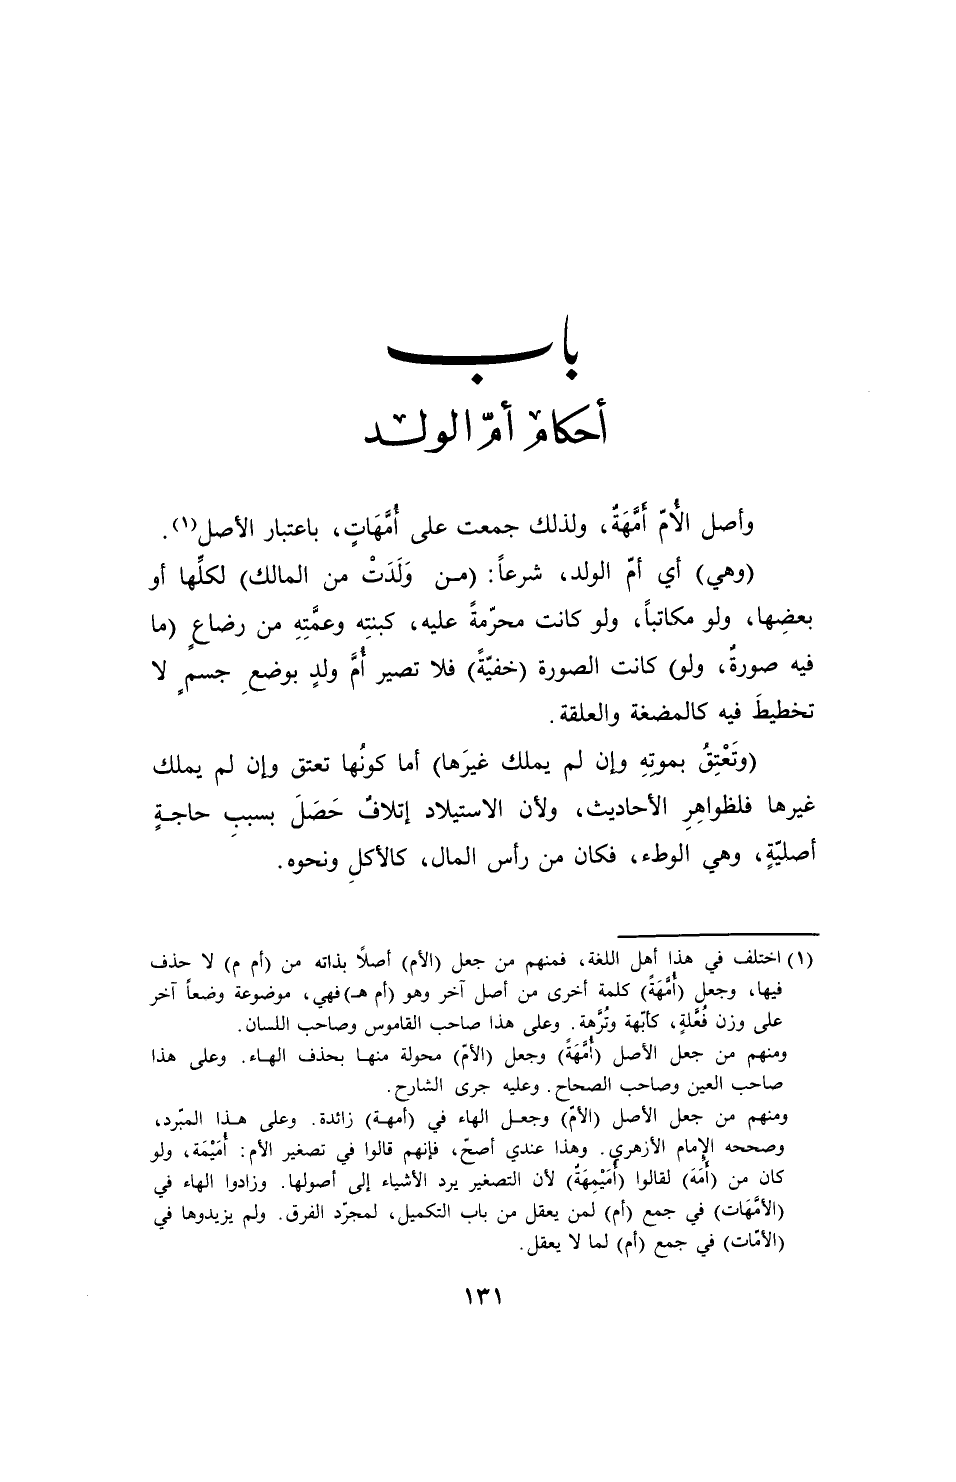 باب
أحكام أمّ الولد
وأصل الأُمّ أُمَّهَةٌ، ولذلك جمعت على أُمَّهَاتٍ، باعتبار الأصل(١).
(وهي) أي أمّ الولد، شرعاً: (من وَلَدَتْ من المالك) لكلِّها أو
بعضِها، ولو مكاتباً، ولو كانت محرّمةً عليه، كبنتِه وعمَّتِهِ من رضاعٍ (ما
فيه صورةٌ، ولو) كانت الصورة (خفيّةً) فلا تصير أُمَّ ولدٍ بوضعِ جسمٍ لا
تخطيطَ فيه كالمضغة والعلقة.
(وتَعْتِقُ بموتِهِ وإن لم يملك غيرَها) أما كونُها تعتق وإن لم يملك
غيرها فلظواهِرِ الأحاديث، ولأن الاستيلاد إتلافٌ حَصَلَ بسببِ حاجةٍ
أصليّةٍ، وهي الوطء، فكان من رأس المال، كالأكلِ ونحوه.
(١) اختلف في هذا أهل اللغة، فمنهم من جعل (الأم) أصلاً بذاته من (أم م) لا حذف
فيها، وجعل (أُمَّهَةً) كلمة أخرى من أصل آخر وهو (أم هـ) فهي، موضوعة وضعاً آخر
على وزن فُعَّلةٍ، كأبّهة وتُرَّهة. وعلى هذا صاحب القاموس وصاحب اللسان.
ومنهم من جعل الأصل (أُمَّهَةً) وجعل (الأمّ) محولة منها بحذف الهاء. وعلى هذا
صاحب العين وصاحب الصحاح. وعليه جرى الشارح.
ومنهم من جعل الأصل (الأمّ) وجعل الهاء في (أمهة) زائدة. وعلى هذا المبّرد،
وصححه الإمام الأزهري. وهذا عندي أصحّ، فإنهم قالوا في تصغير الأم: أُمَيْمَة، ولو
كان من (أَمَه) لقالوا (أُمَيْمِهَةٌ) لأن التصغير يرد الأشياء إلى أصولها. وزادوا الهاء في
(الأمَّهَات) في جمع (أم) لمن يعقل من باب التكميل، لمجرّد الفرق. ولم يزيدوها في
(الأمّات) في جمع (أم) لما لا يعقل.
١٣١